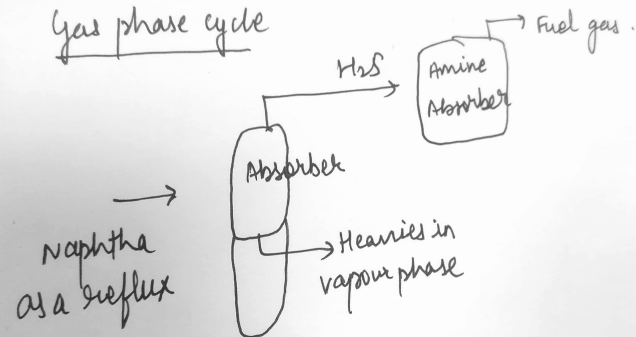 Gas phase cycle
Fuel gas.
H2S
Amine
Absorber
Absorber
Naphtha
as a reflux
Heavies in
vapour phase